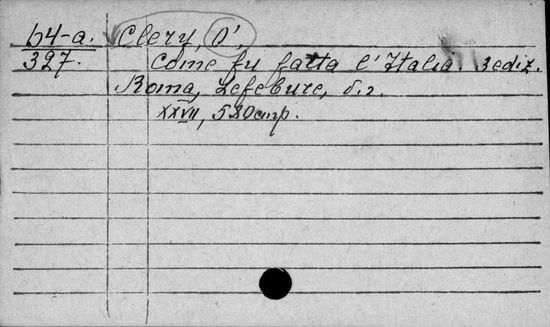 64-a. Clery, O',
327. Come fu fatta l'Italia. 3 ediz.
Roma, Lefebure, s.a.
XXVII, 520 cmp.